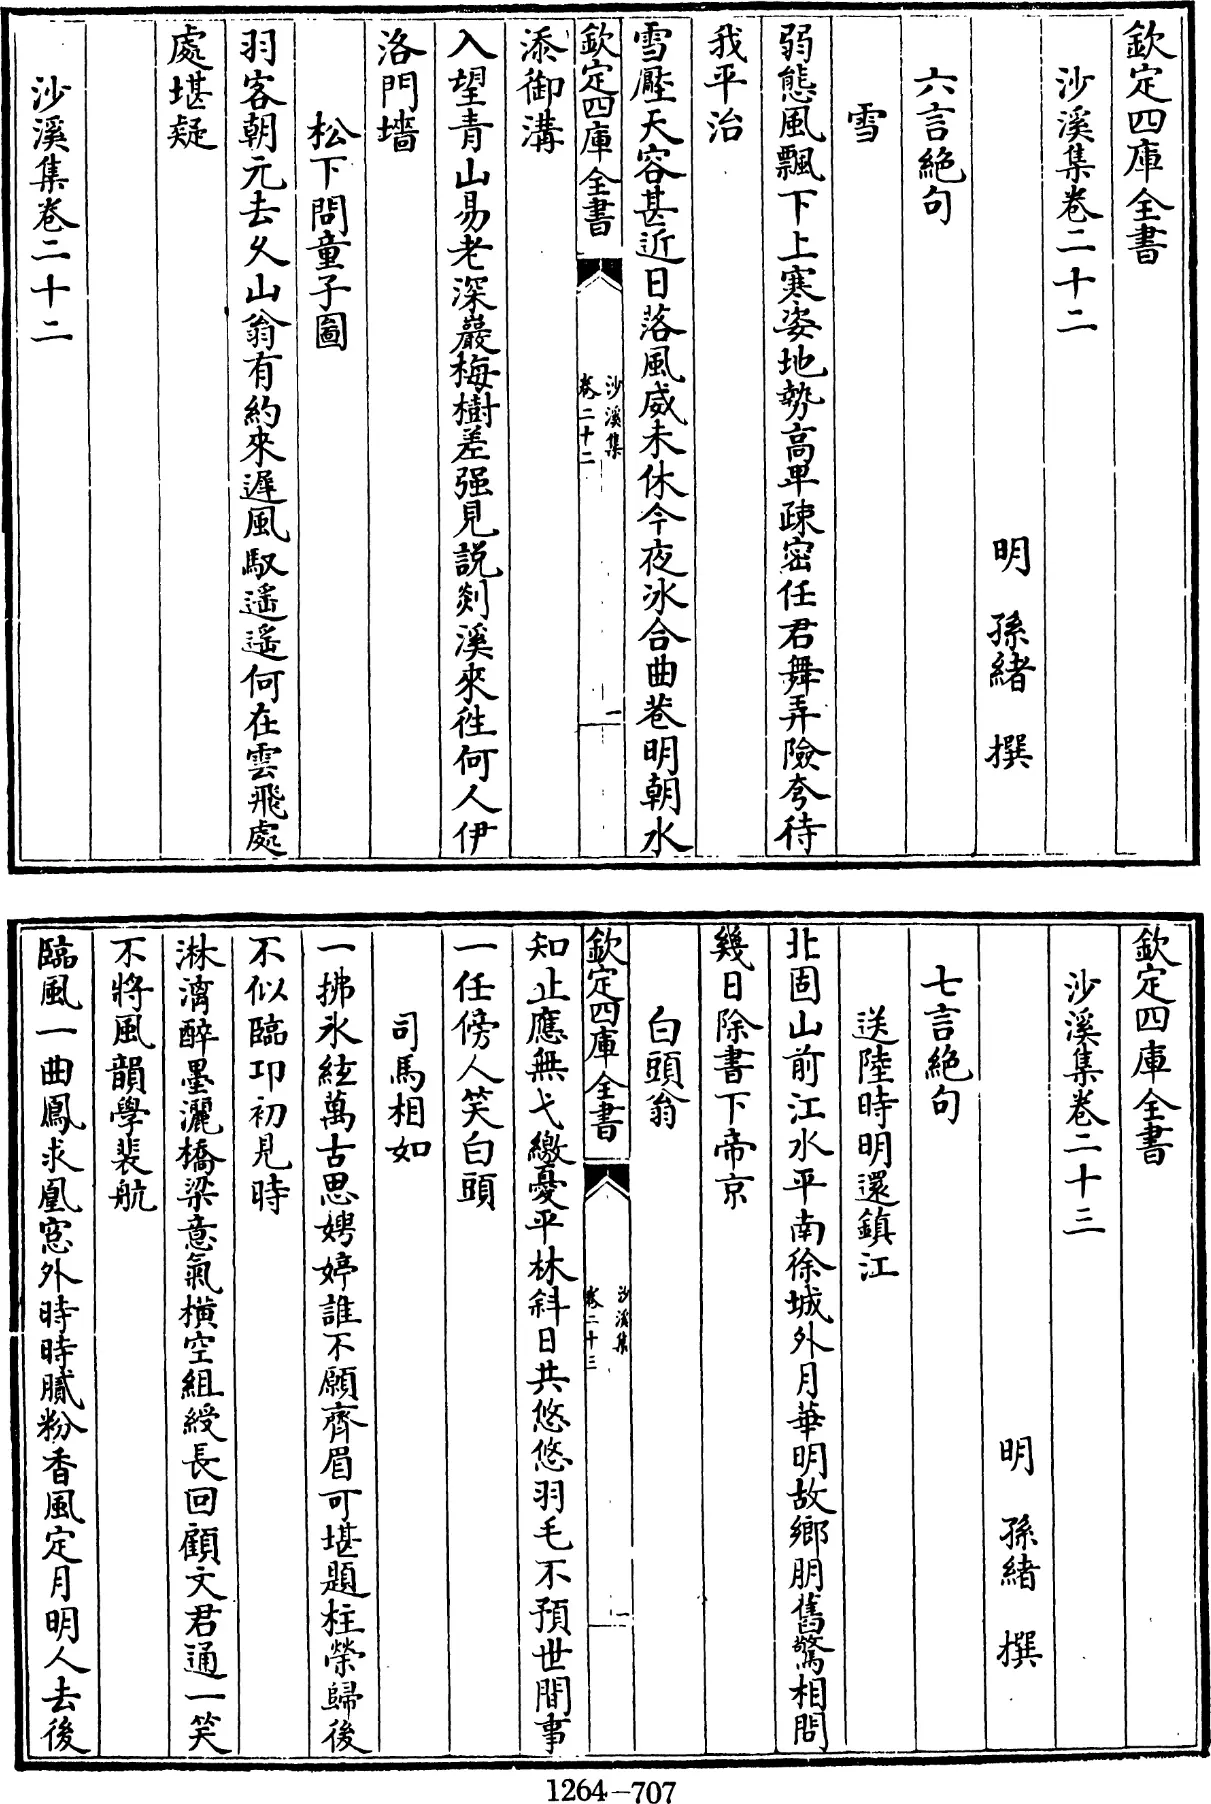 欽定四庫全書
沙溪集卷二十二
明 孫緒 撰
六言絶句
雪
弱態風飄下上寒姿地勢高卑疎密任君舞弄險夸待
我平治
雪壓天容甚近日落風威未休今夜氷合曲巷明朝水
欽定四庫全書
沙溪集
卷二十二
一
添御溝
入望青山易老深巖梅樹差强見説剡溪來徃何人伊
洛門墻
松下問童子圖
羽客朝元去久山翁有約來遲風馭遥遥何在雲飛處
處堪疑
沙溪集卷二十二
欽定四庫全書
沙溪集卷二十三
明 孫緒 撰
七言絶句
送陸時明還鎮江
北固山前江水平南徐城外月華明故鄉朋舊驚相問
幾日除書下帝京
白頭翁
欽定四庫全書
沙溪集
卷二十三
一
知止應無弋繳憂平林斜日共悠悠羽毛不預世間事
一任傍人笑白頭
司馬相如
一拂氷絃萬古思娉婷誰不願齊眉可堪題柱榮歸後
不似臨卭初見時
淋漓醉墨灑橋梁意氣横空組綬長回顧文君通一笑
不將風韻學裴航
臨風一曲鳳求凰窓外時時膩粉香風定月明人去後
1264-707